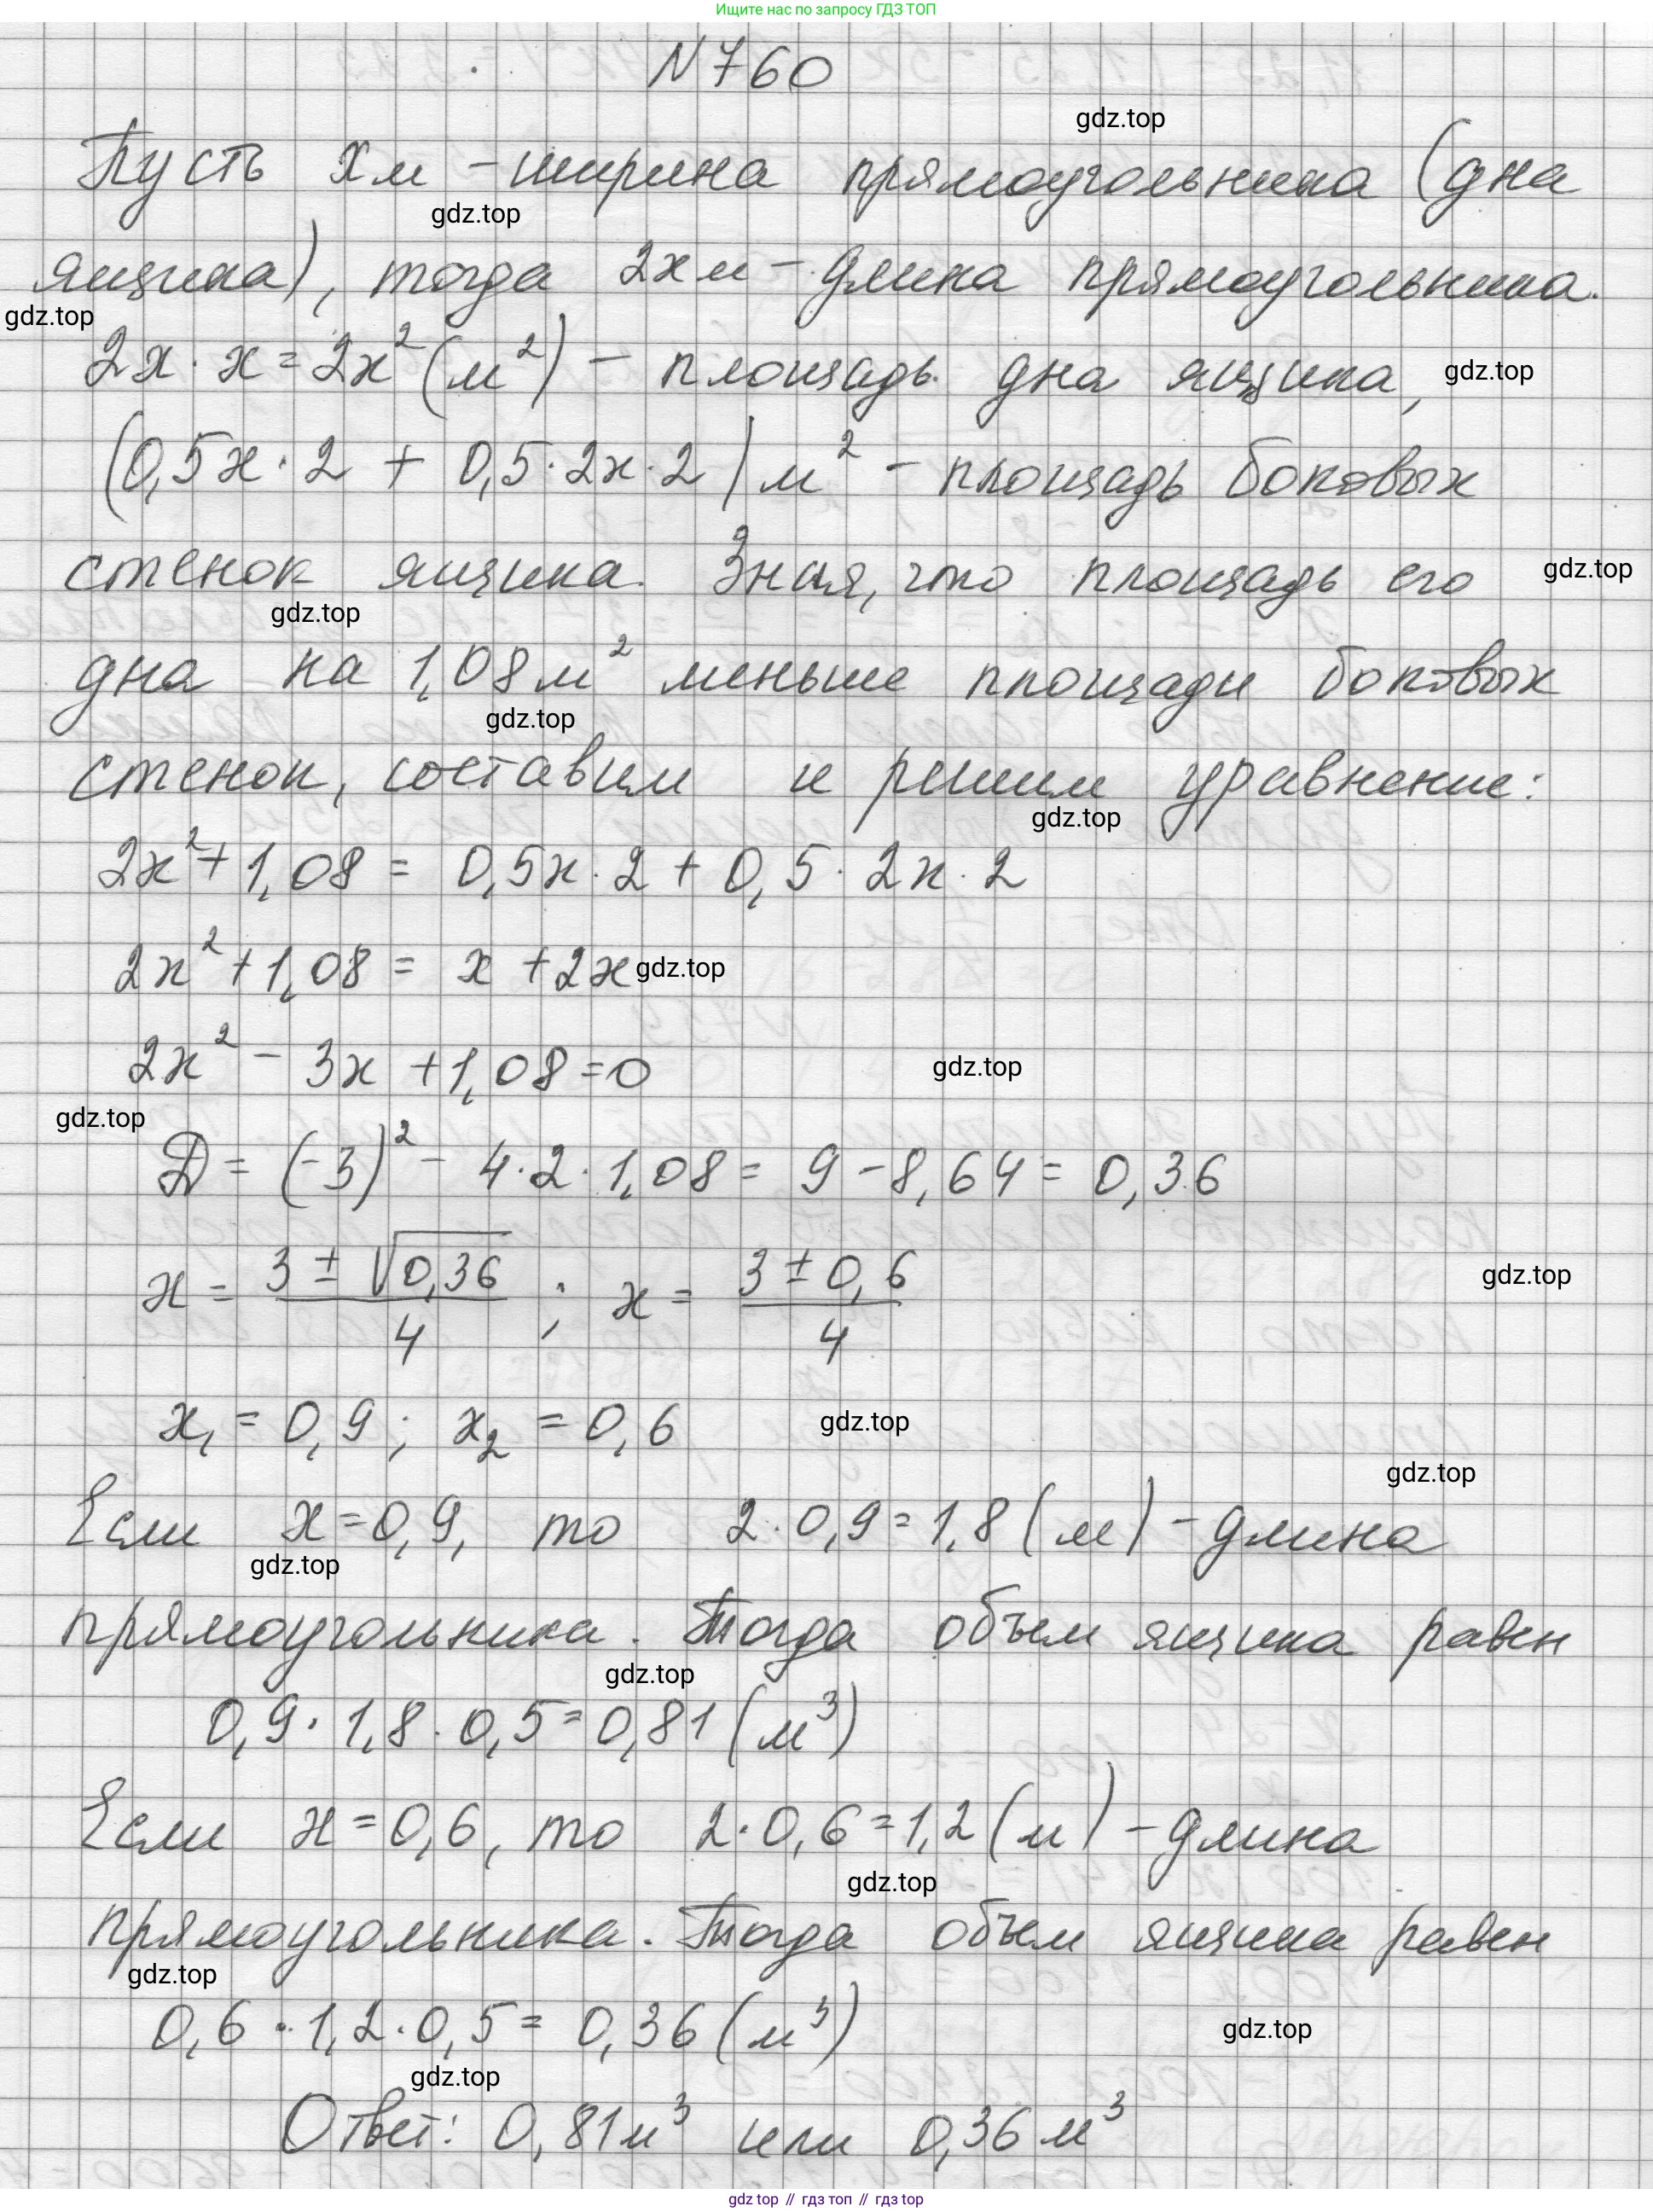 Ищите нас по запросу ГДЗ ТОП
N760
gdz.top
Пусть х м – ширина прямоугольника (дна
gdz.top
ящика), тогда 2х м – длина прямоугольника.
gdz.top
2х · х = 2х² (м²) – площадь дна ящика,
gdz.top
(0,5х · 2 + 0,5 · 2х · 2) м² – площадь боковых
стенок ящика. Зная, что площадь его
gdz.top
gdz.top
дна на 1,08 м² меньше площади боковых
gdz.top
стенок, составим и решим уравнение:
gdz.top
2х² + 1,08 = 0,5х · 2 + 0,5 · 2х · 2
2х² + 1,08 = х + 2х
gdz.top
2х² – 3х + 1,08 = 0
gdz.top
gdz.top
D = (-3)² – 4 · 2 · 1,08 = 9 – 8,64 = 0,36
х = (3 ± √0,36)/4 ; х = (3 ± 0,6)/4
gdz.top
х₁ = 0,9; х₂ = 0,6
gdz.top
gdz.top
Если х = 0,9, то 2 · 0,9 = 1,8 (м) – длина
gdz.top
прямоугольника. Тогда объем ящика равен
gdz.top
0,9 · 1,8 · 0,5 = 0,81 (м³)
Если х = 0,6, то 2 · 0,6 = 1,2 (м) – длина
gdz.top
прямоугольника. Тогда объем ящика равен
gdz.top
0,6 · 1,2 · 0,5 = 0,36 (м³)
gdz.top
gdz.top
Ответ: 0,81 м³ или 0,36 м³
gdz top // гдз топ // гдз top